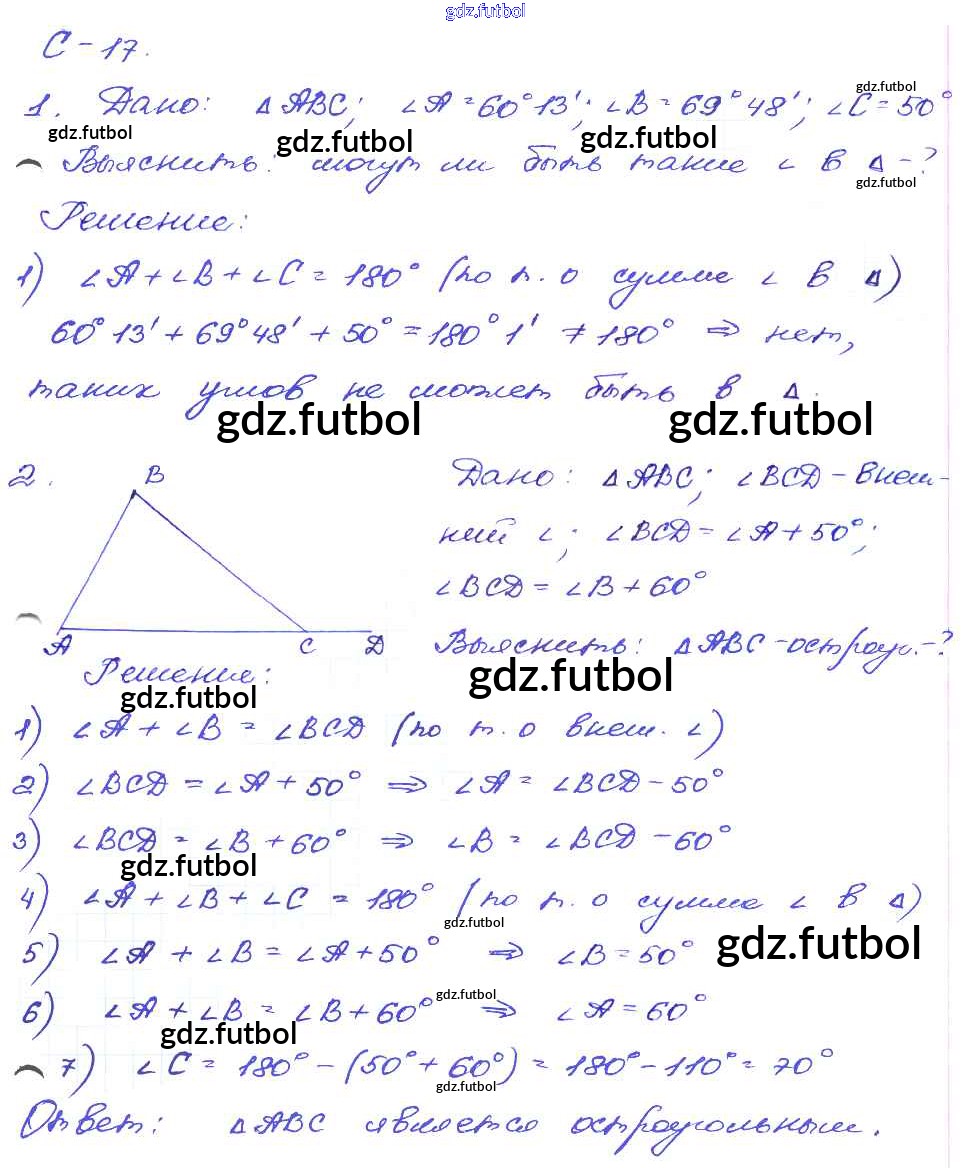 gdz.futbol
С-17.
1. Дано: △ABC; ∠A=60°13'; ∠B=69°48'; ∠C=50°
gdz.futbol
gdz.futbol gdz.futbol gdz.futbol
Выяснить: могут ли быть такие ∠ в △-?
gdz.futbol
Решение:
1) ∠A+∠B+∠C=180° (по т. о сумме ∠ в △)
60°13'+69°48'+50°=180°1' ≠180° ⇒ нет,
таких углов не может быть в △.
gdz.futbol gdz.futbol
2.
B
A C D
Дано: △ABC; ∠BCD-внеш-
ний ∠; ∠BCD=∠A+50°;
∠BCD=∠B+60°
Выяснить: △ABC-остроуг.-?
gdz.futbol
Решение:
gdz.futbol
1) ∠A+∠B=∠BCD (по т. о внеш. ∠)
2) ∠BCD=∠A+50° ⇒ ∠A=∠BCD-50°
3) ∠BCD=∠B+60° ⇒ ∠B=∠BCD-60°
gdz.futbol
4) ∠A+∠B+∠C=180° (по т. о сумме ∠ в △)
gdz.futbol
5) ∠A+∠B=∠A+50° ⇒ ∠B=50°
gdz.futbol
6) ∠A+∠B=∠B+60° ⇒ ∠A=60°
gdz.futbol
gdz.futbol
7) ∠C=180°-(50°+60°)=180°-110°=70°
gdz.futbol
Ответ: △ABC является остроугольным.